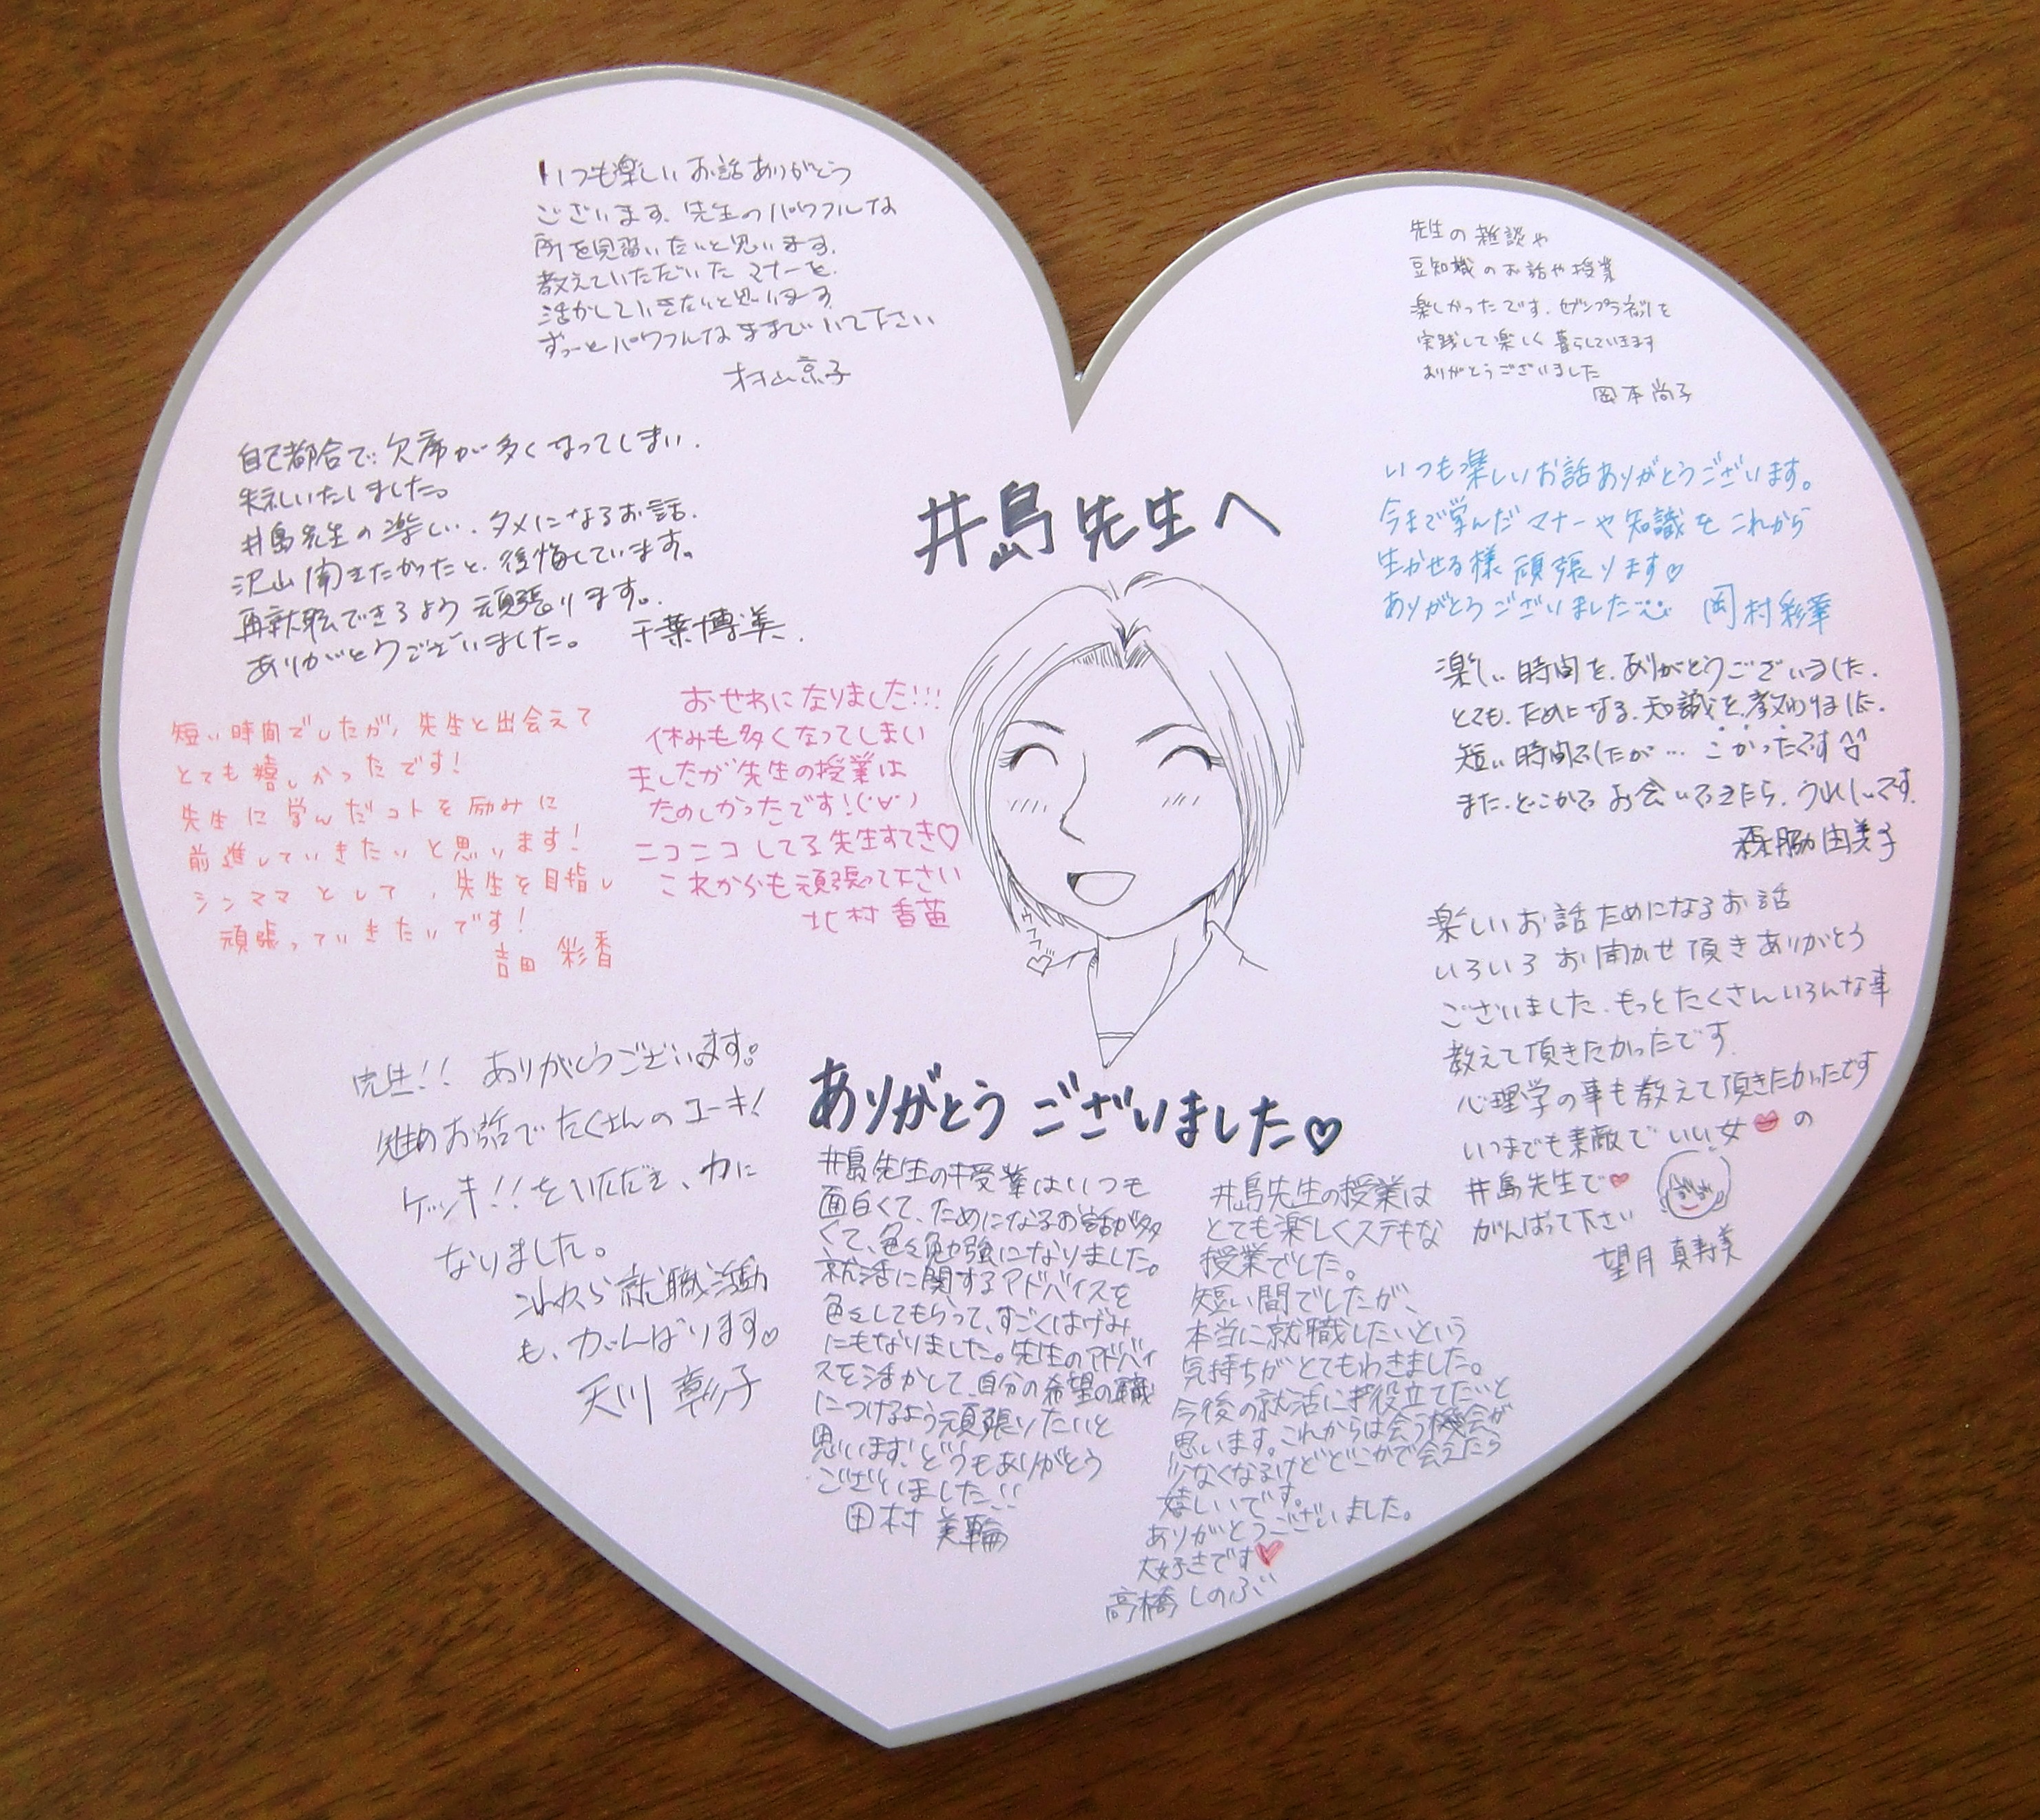 井島先生へ
ありがとうございました♡
いつも楽しいお話ありがとう
ございます。先生のパワフルな
所を見習いたいと思います。
教えていただいたマナーを、
活かしていきたいと思います
ずっーとパワフルなままでいて下さい
村山京子
先生の雑談や
豆知識のお話や授業
楽しかったです。セブンプラネットを
実践して楽しく暮らしていきます
ありがとうございました
岡本尚子
自己都合で、欠席が多くなってしまい、
失礼いたしました。
井島先生の楽しい、タメになるお話、
沢山聞きたかったと、後悔しています。
再就職できるよう頑張ります。
ありがとうございました。 千葉博美
いつも楽しいお話ありがとうございます。
今まで学んだマナーや知識をこれから
生かせる様頑張ります♡
ありがとうございました 岡村彩華
楽しい時間を、ありがとうございました。
とても、ためになる、知識を、教わりました。
短い時間でしたが… こかったです
また、どこかで、お会いできたら、うれしいです。
森脇由美子
短い時間でしたが、先生と出会えて
とても嬉しかったです!
先生に学んだコトを励みに
前進していきたいと思います!
シンママとして、先生を目指し
頑張っていきたいです!
吉田 彩香
おせわになりました!!!
休みも多くなってしまい
ましたが先生の授業は
たのしかったです!(°∀°)
ニコニコしてる先生すてき♡
これからも頑張って下さい
北村香苗
ウフフ♡
楽しいお話ためになるお話
いろいろお聞かせ頂きありがとう
ございました。もっとたくさんいろんな事
教えて頂きたかったです。
心理学の事も教えて頂きたかったです
いつまでも素敵でいい女💋の
井島先生で♥
がんばって下さい
望月真寿美
先生!! ありがとうございます。
先生のお話でたくさんのユーキ!
ゲンキ!!をいただき、力に
なりました。
これから就職活動
も、がんばります♡
天川 章子
井島先生の授業はいつも
面白くて、ためになるお話が多
くて、色々勉強になりました。
就活に関するアドバイスを
色々してもらって、すごくはげみ
にもなりました。先生のアドバイ
スを活かして、自分の希望の職
につけるよう頑張りたいと
思います。どうもありがとう
ございました!!
田村 美輪
井島先生の授業は
とても楽しくステキな
授業でした。
短い間でしたが、
本当に就職したいという
気持ちがとてもわきました。
今後の就活に役立てたいと
思います。これからは会う機会が
少なくなるけどどこかで会えたら
嬉しいです。
ありがとうございました。
大好きです♥
高橋しのぶ